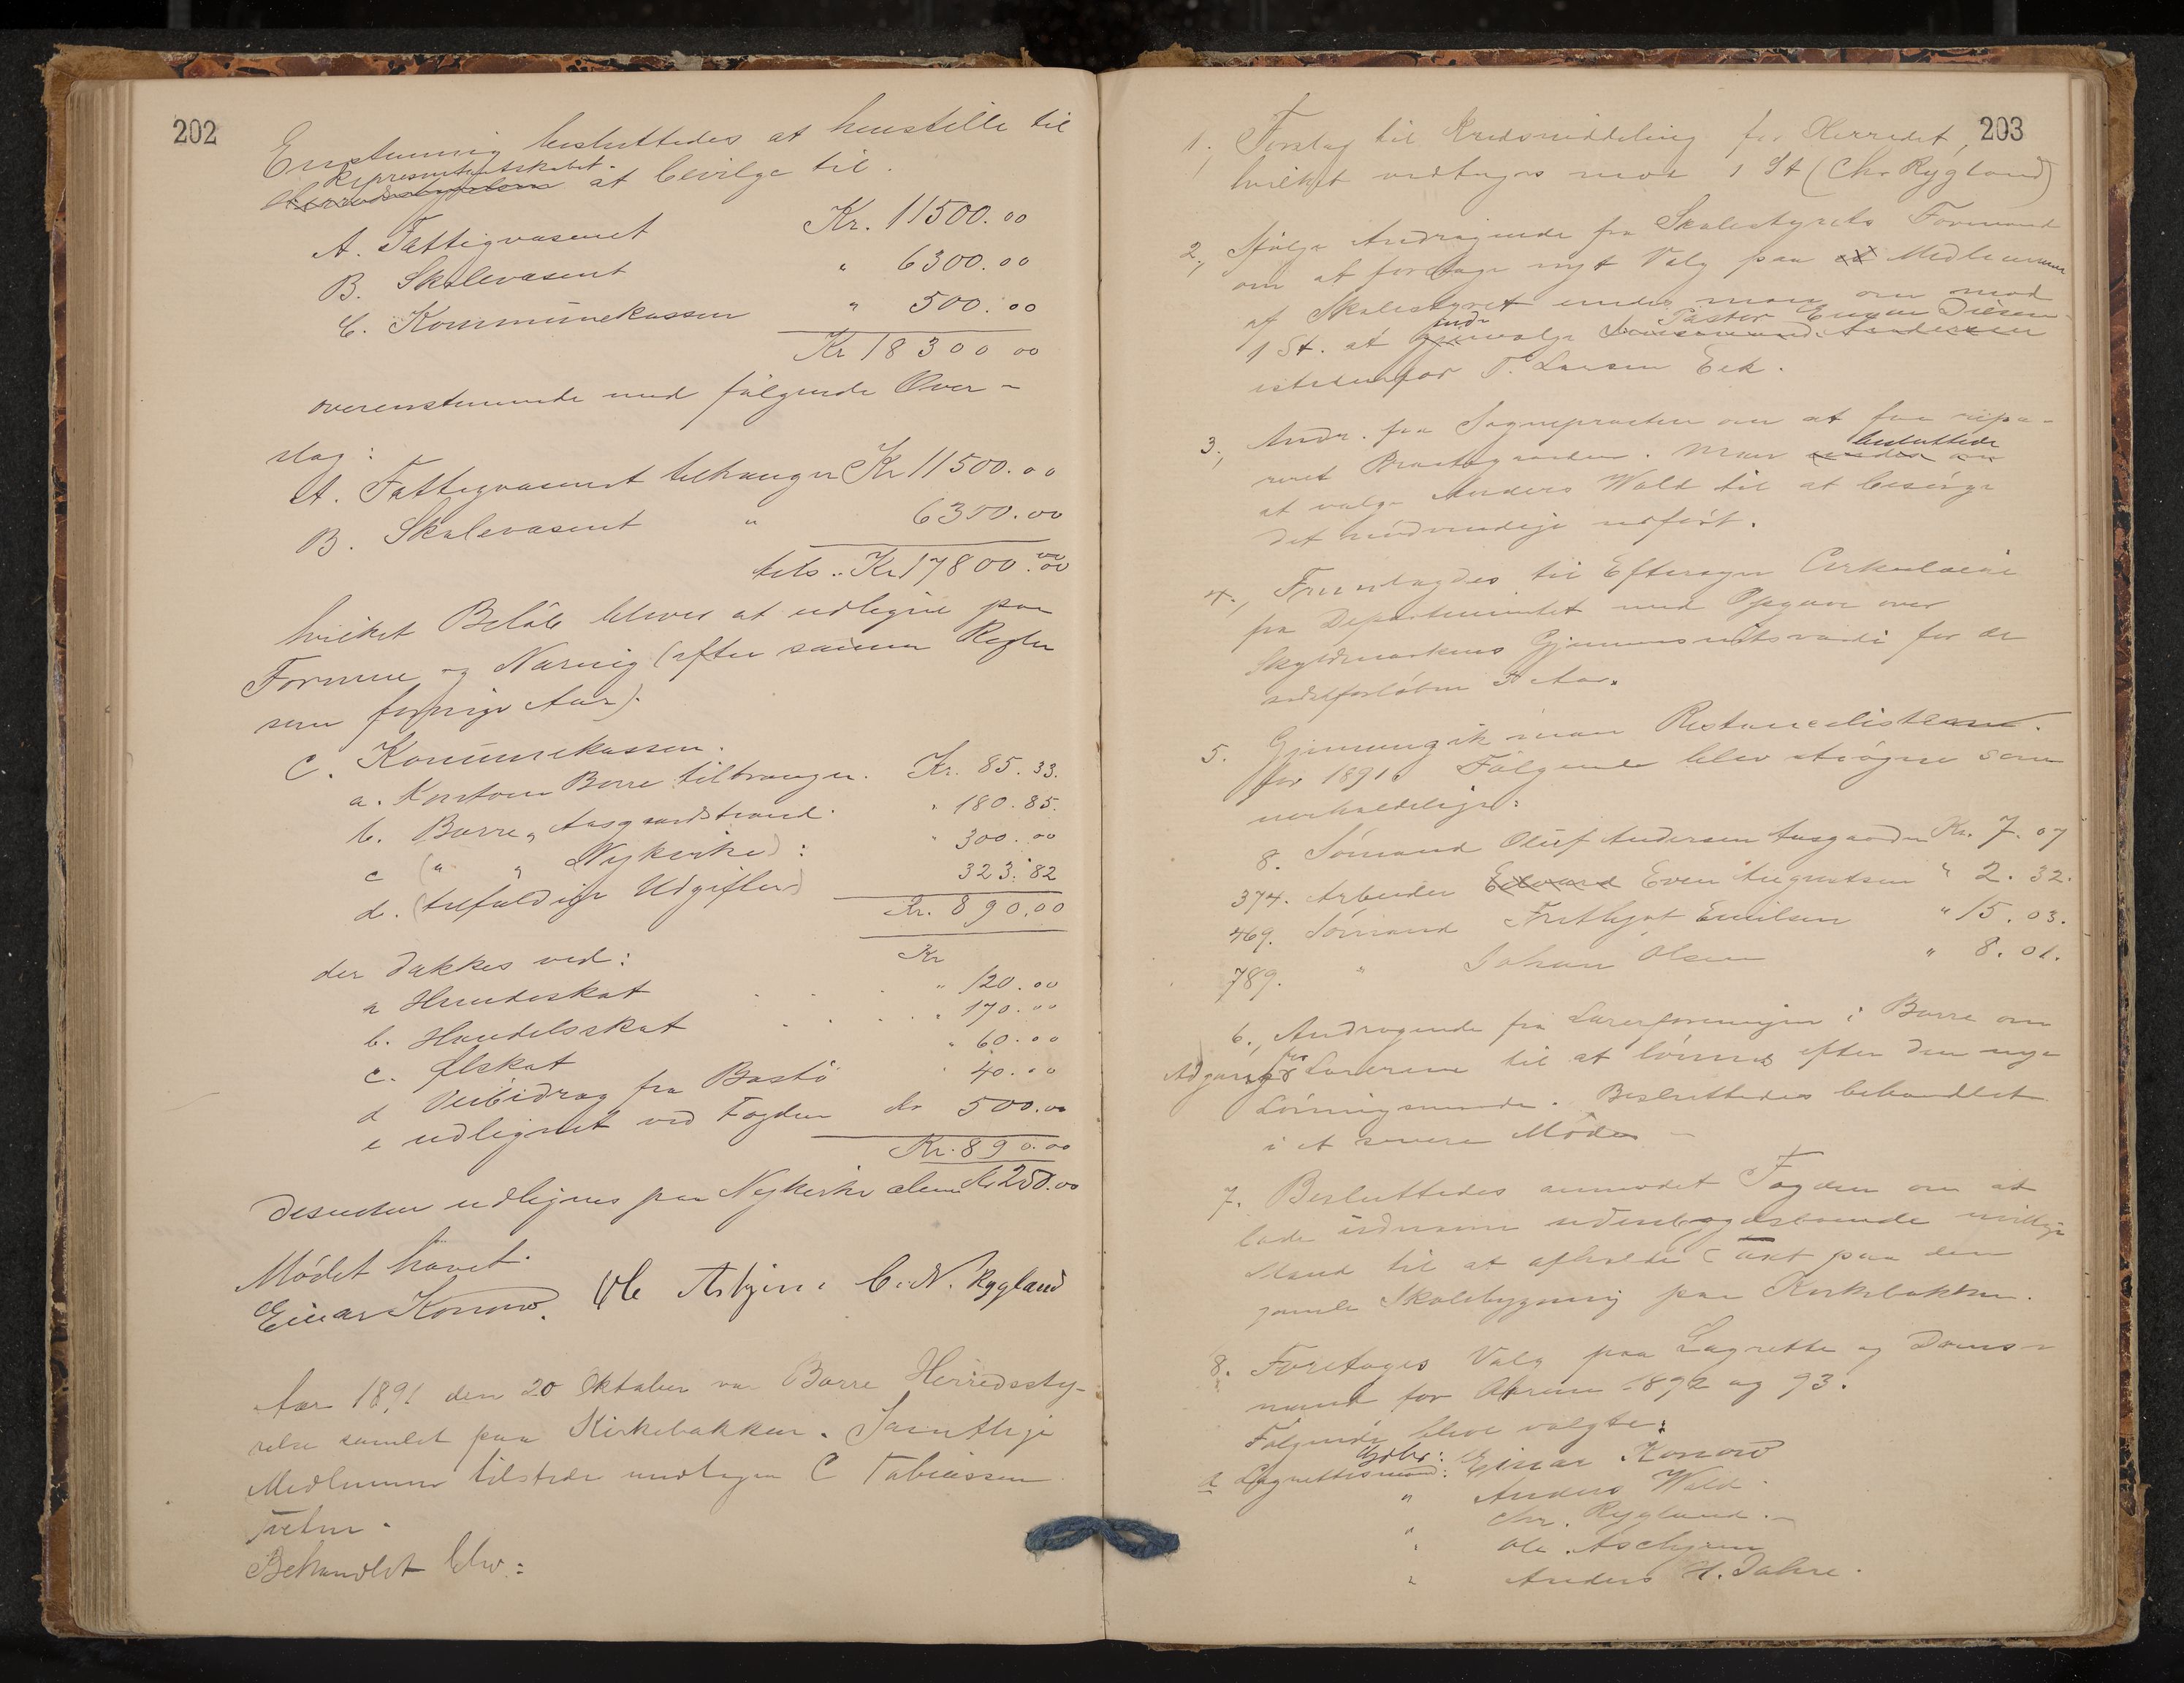 202
Enstemmig besluttedes at henstille til
Representantskabet
Herredsstyrelsen at bevilge til.
A. Fattigvæsenet Kr. 11500.00
B. Skolevæsent " 6300.00
C. Kommunekassen " 500.00
Kr 18300 00
overenstemmende med følgende Over-
slag:
A. Fattigvæsenet tiltrænger Kr 11500.00
B. Skolevæsent " 6300.00
tils.. Kr 17800.00
hvilket Beløb bliver at udligne paa
Formue og Næring (efter samme Regler
som forrige Aar).
C. Kommunekassen.
a. Borre tiltrænger. Kr. 85.33.
b. Borre, Aasgaardstrand. " 180.85.
c (" " Nykirke): " 300.00
d. (tilfældige Udgifter) 323.82
Kr. 890.00
der dækkes ved: Kr
a Hundeskat " 120.00
b. Handelsskat " 170.00
c. Ølskat " 60.00
d Veibidrag fra Bastø " 40.00
e udlignet ved Fogden Kr 500.00
Kr. 890.00
Desuden udlignes paa Nykirke alene Kr 250.00
Mødet hævet.
Einar Konow. Ole Asbjørn. C. N. Rygland
Aar 1891 den 20 Oktober var Borre Herredssty-
relse samlet paa Kirkebakken. Samtlige
Medlemmer tilstede undtagen C Tobiassen
Behandlet blev:
203
1. Forslag til Kredsinddeling for Herredet,
hvilket vedtages mod 1 St (Chr Rygland)
2., Ifølge Andragende fra Skolestyrets Formand
om at foretage nyt Valg paa et Medlemmer
af Skolestyret enedes man om mod
Pastor Diesen
1 St. at valge Andersen
istedenfor T. Larsen Eek.
3., Andr. fra Sognepræsten om at faa repa-
besluttede
reret Præstegaarden. Man enedes om
at valge Anders Wold til at besørge
det nødvendige udført.
4., Fremlagdes til Eftersyn Cirkulære
fra Departementet med Opgave over
Skyldmarkens Gjennemsnitsværdi for de
sidstforløbne 5 Aar.
5. Gjennemgik man Restancelisterne
for 1891. Følgende blev strøgne som
uerholdelige:
8. Sømand Oluf Andersen Aasgaarden Kr. 7.07
374. Arbeider Edvard Even Augustsen " 2.32.
469. Sømand Frithjof Emilsen " 15.03.
789. " Johan Olsen " 8.01.
6., Andragende fra Lærerforeningen i Borre om
for
Adgang Lærerne til at lønnes efter den nye
Lønningsmaade. Besluttedes behandlet
i et senere Møde –
7. Besluttedes anmodet Fogden om at
lade
Mænd til at afholde Taxt paa den
gamle Skolebygning paa Kirkebakken.
8. Foretoges Valg paa Lagrette og Doms-
mænd for Aarene 1892 og 93.
Følgende bleve valgte:
a Lagrettesmænd: Gdbr: Einar Konow
" Anders Wold
" Chr. Rygland.
" Ole Asbjørn
" Anders H. Jahre.